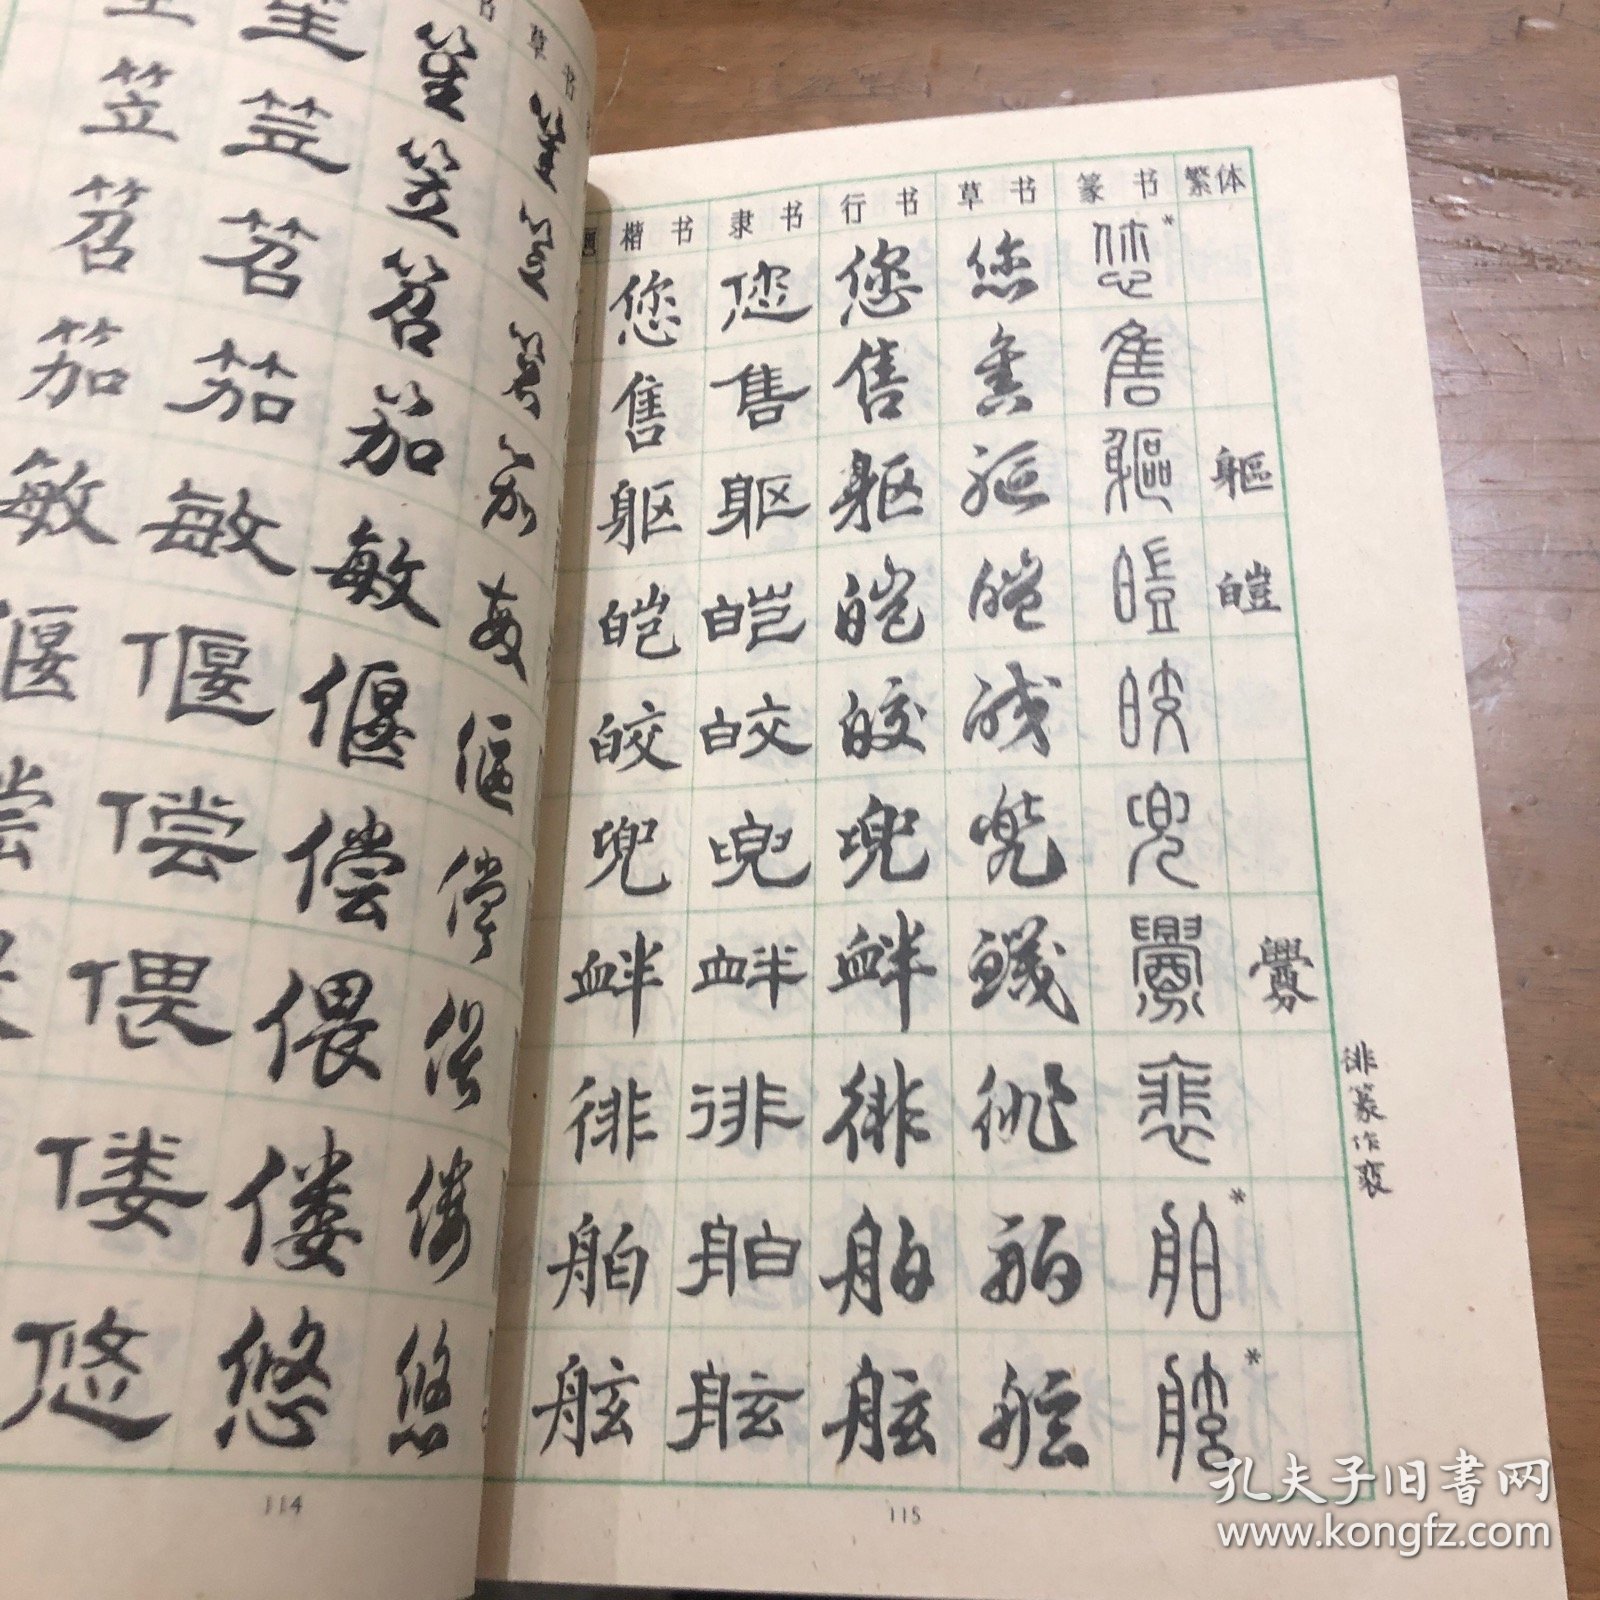 书 草 书
笙 笙 笙
笠 笠 笠 笠
笤 笤 笤 笤
笳 笳 笳 笳
敏 敏 敏 敏
偃 偃 偃 偃
偿 偿 偿 偿
偎 偎 偎
偻 偻 偻
悠 悠 悠
114
画 楷书 隶书 行书 草书 篆书 繁体
您 您 您 您 您*
售 售 售 售 售
躯 躯 躯 躯 軀 軀
皑 皑 皑 皑 皚 皚
皎 皎 皎 皎 皎
兜 兜 兜 兜 兜
衅 衅 衅 衅 釁 釁
徘 徘 徘 徘 裵
舶 舶 舶 舶 舶*
舷 舷 舷 舷 舷*
徘篆作裵
115
孔夫子旧书网
www.kongfz.com